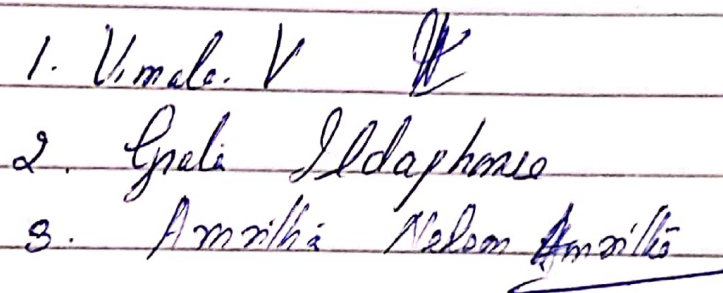 1. Vimala. V
2. Grala Ildaphonse
3. Amritha Nelson Amritha